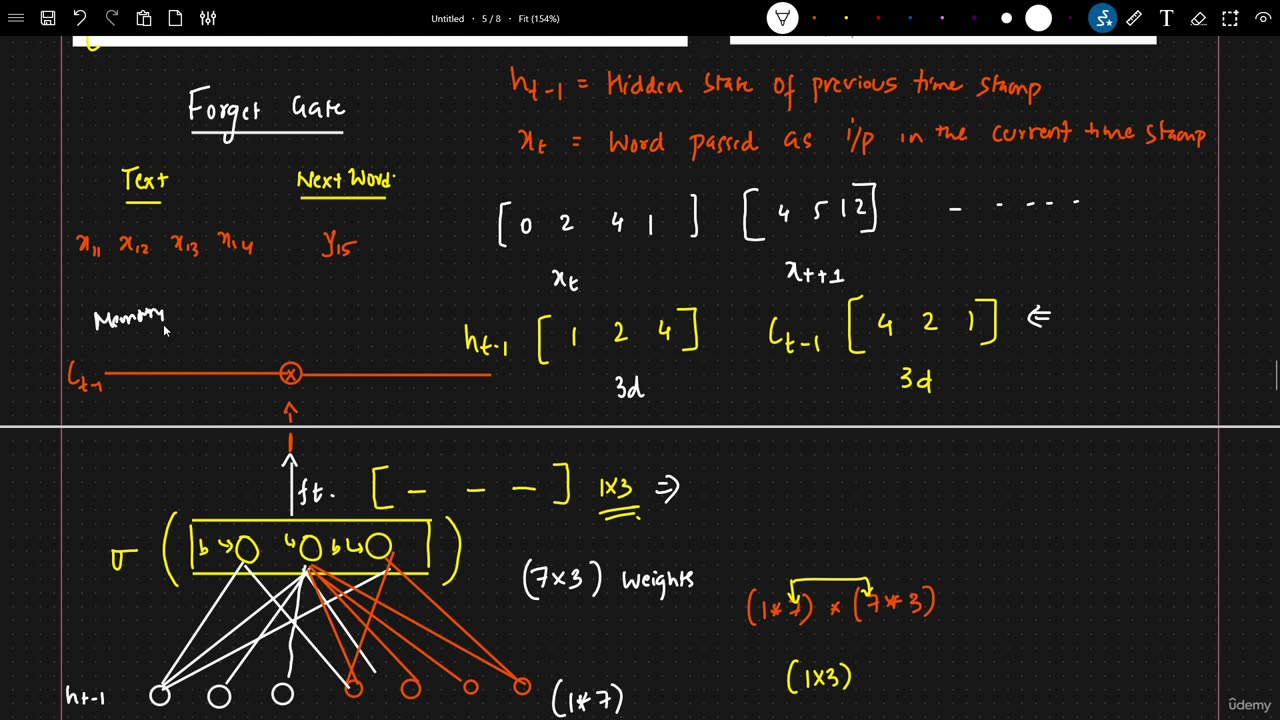 Untitled • 5 / 8 • Fit (154%)
Forget Gate
ht-1 = Hidden state of previous time stamp
xt = Word passed as i/p in the current time stamp
Text Next Word
x11 x12 x13 x14 y15
[0 2 4 1] [4 5 1 2] - - - - -
xt xt+1
Memory
ht-1 [1 2 4] Ct-1 [4 2 1] ⇐
3d 3d
Ct-1 x
ft. [- - -] 1x3 ⇒
σ ( [b→ ↳ b↳] )
(7x3) weights
(1*7) x (7*3)
(1x3)
ht-1 (1*7)
ûdemy